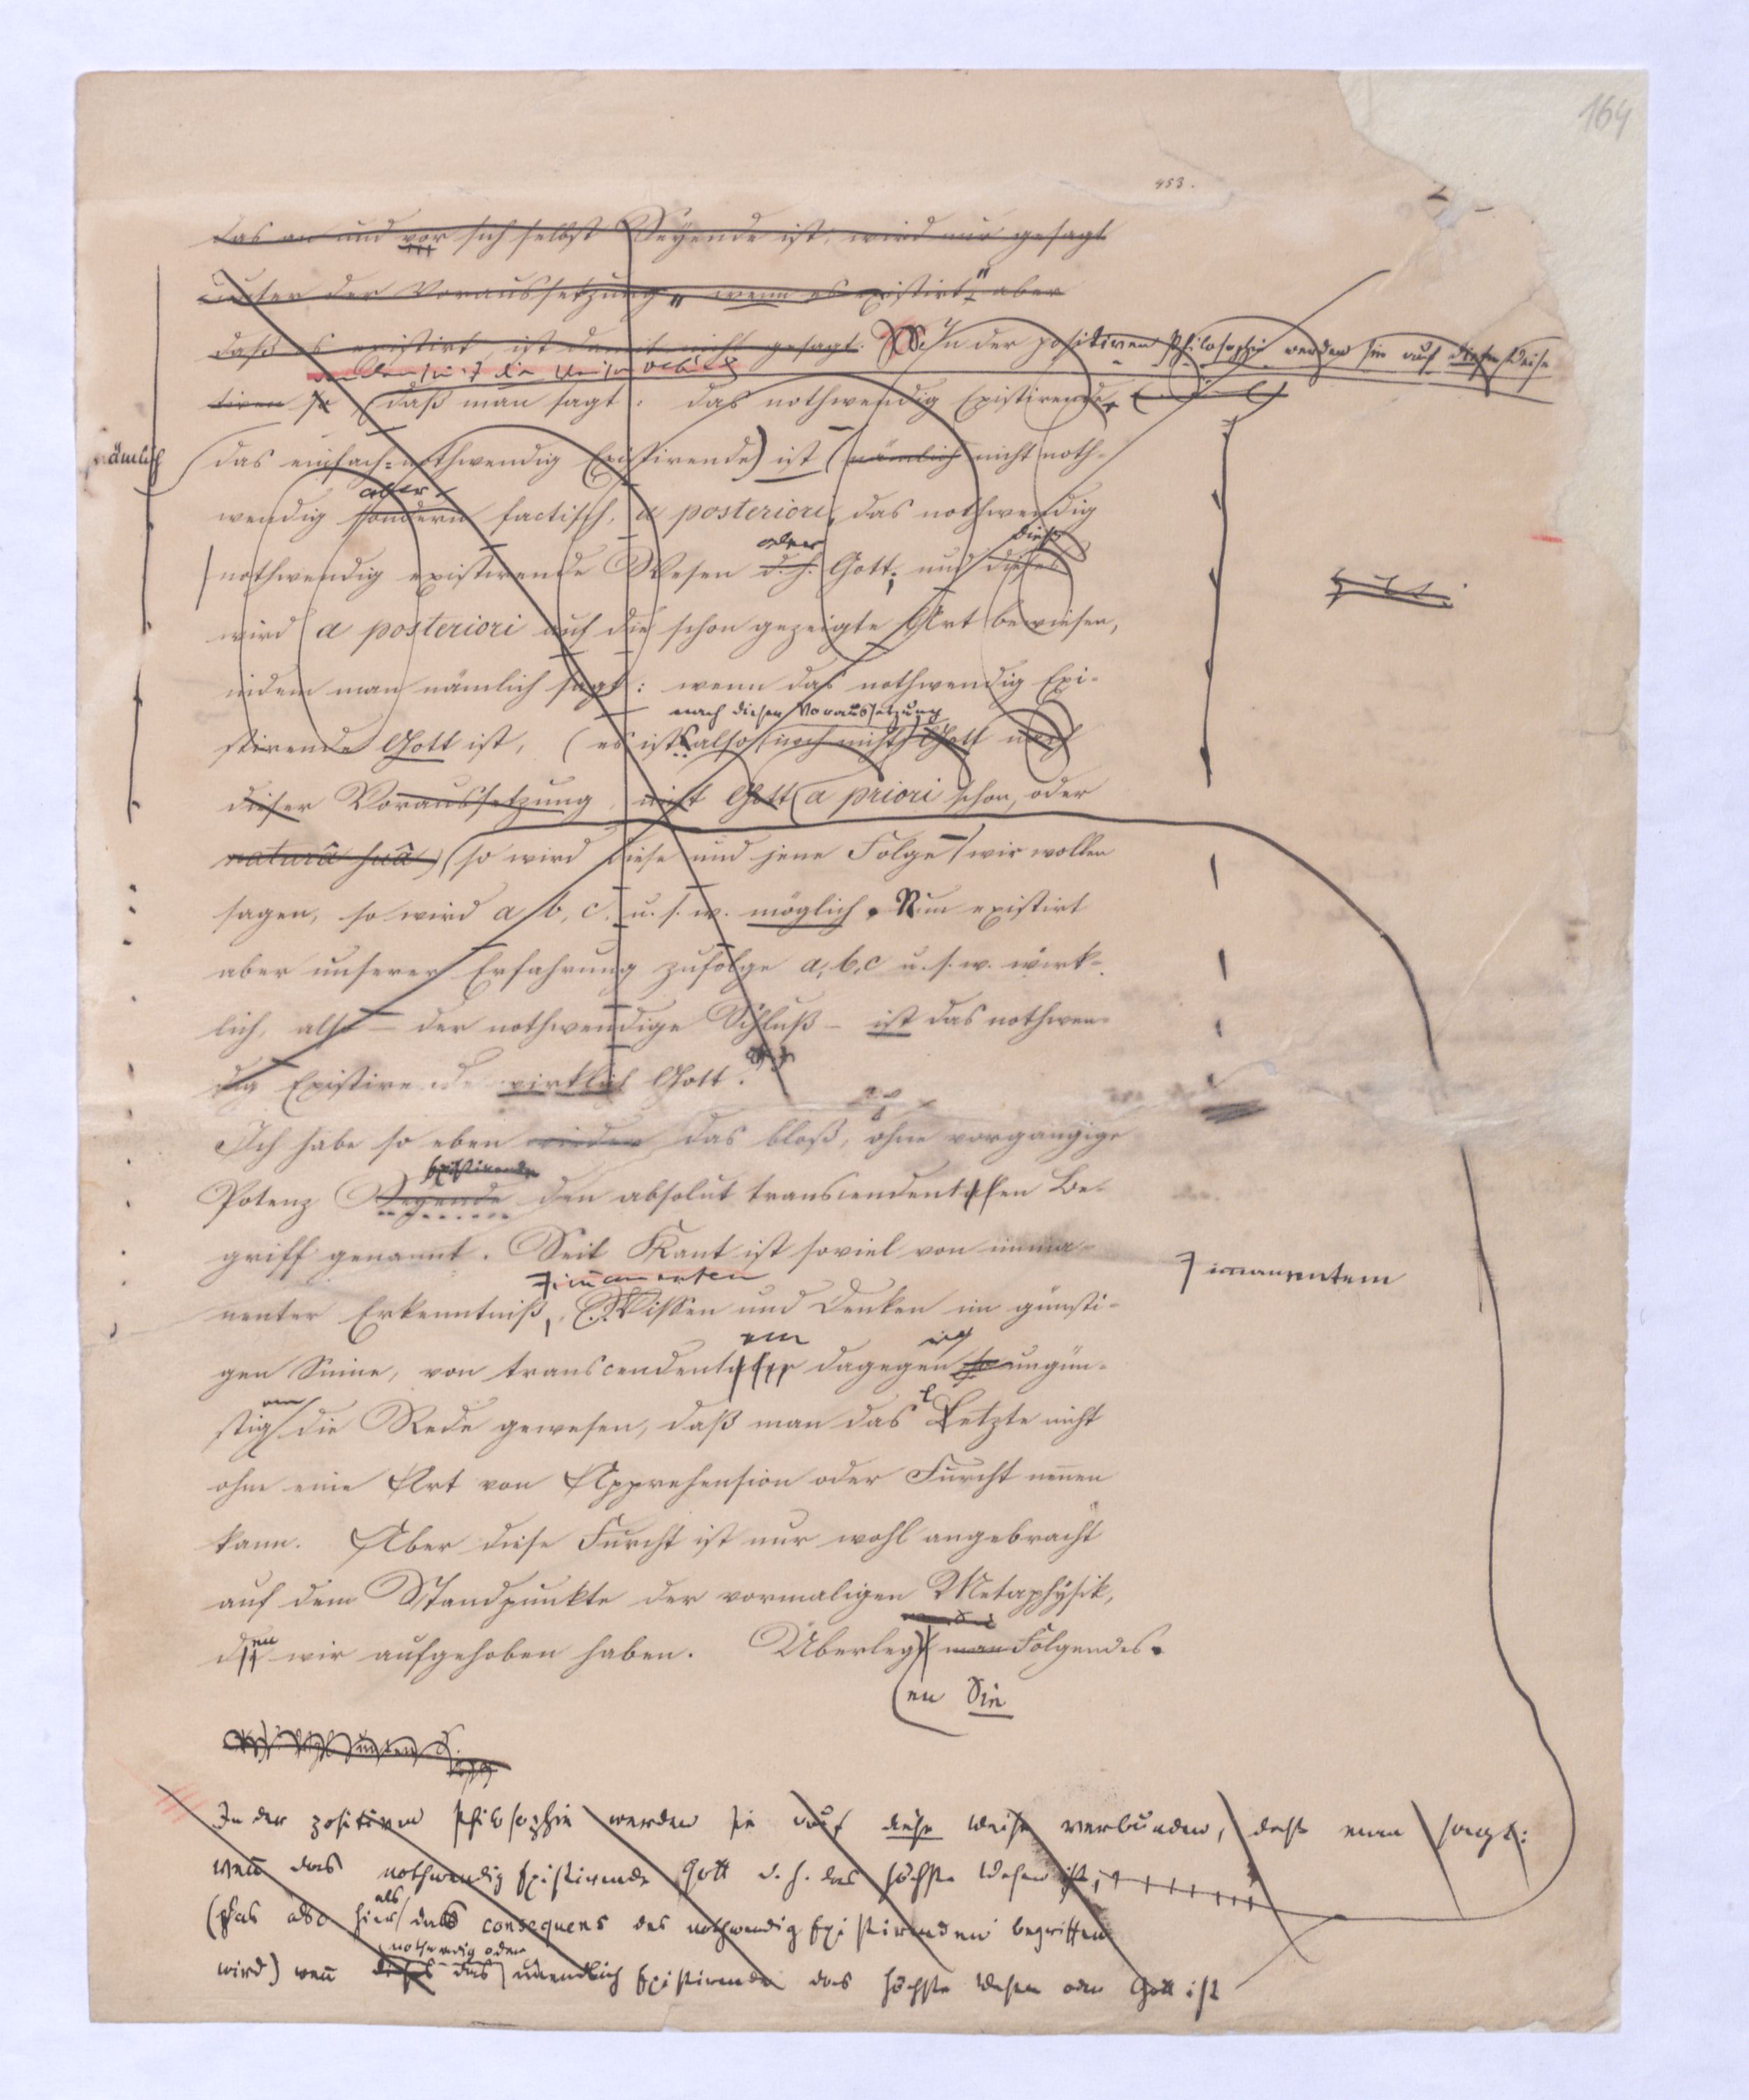 164
453.
das an und vor sich selbst Seyende ist, wird nur gesagt
unter der Voraussetzung „wenn es existirt", aber
daß es existirt, ist damit nicht gesagt. In der positiven Philosophie werden sie auf diese Weise
verbunden
tiven so, (daß man sagt: das nothwendig Existirende,
nämlich
das einfach-nothwendig Existirende) ist (nämlich nicht noth-
aber
wendig sondern factisch, a posteriori, das nothwendig
oder dieß
nothwendig existirende Wesen d. h. Gott; und dieses
wird a posteriori auf die schon gezeigte Art bewiesen,
indem man nämlich sagt: wenn das nothwendig Exi-
nach dieser Voraussetzung
stirende Gott ist, (es ist also noch nicht Gott nach
dieser Voraussetzung, nicht Gott a priori schon, oder
naturâ suâ) (so wird diese und jene Folge – wir wollen
sagen, so wird a, b, c, u. s. w. möglich. Nun existirt
aber unserer Erfahrung zufolge a, b, c u. s. w. wirk-
lich, also – der nothwendige Schluß – ist das nothwen-
dig Existirende wirklich Gott.
Ich habe so eben wieder das bloß, ohne vorgängige
Existirende
Potenz Seyende den absolut transcendenten Be-
griff genannt. Seit Kant ist soviel von imma-
immanenten
immanentem
nenter Erkenntniß, Wissen und Denken im günsti-
em
gen Sinne, von transcendent dagegen so ungün-
stig die Rede gewesen, daß man das Letzte nicht
ohne eine Art von Apprehension oder Furcht nennen
kann. Aber diese Furcht ist nur wohl angebracht
auf dem Standpunkte der vormaligen Metaphysik,
den wir aufgehoben haben. Überleg man Folgendes.
en Sie
In der positiven Philosophie werden sie auf diese Weise verbunden, daß man sagt:
wenn das nothwendig Existirende Gott d. h. das höchste Wesen ist,
als
(das also hier das consequens des nothwendig Existirenden begriffen
nothwendig oder
wird) wenn dieses das unendlich Existirende das höchste Wesen oder Gott ist